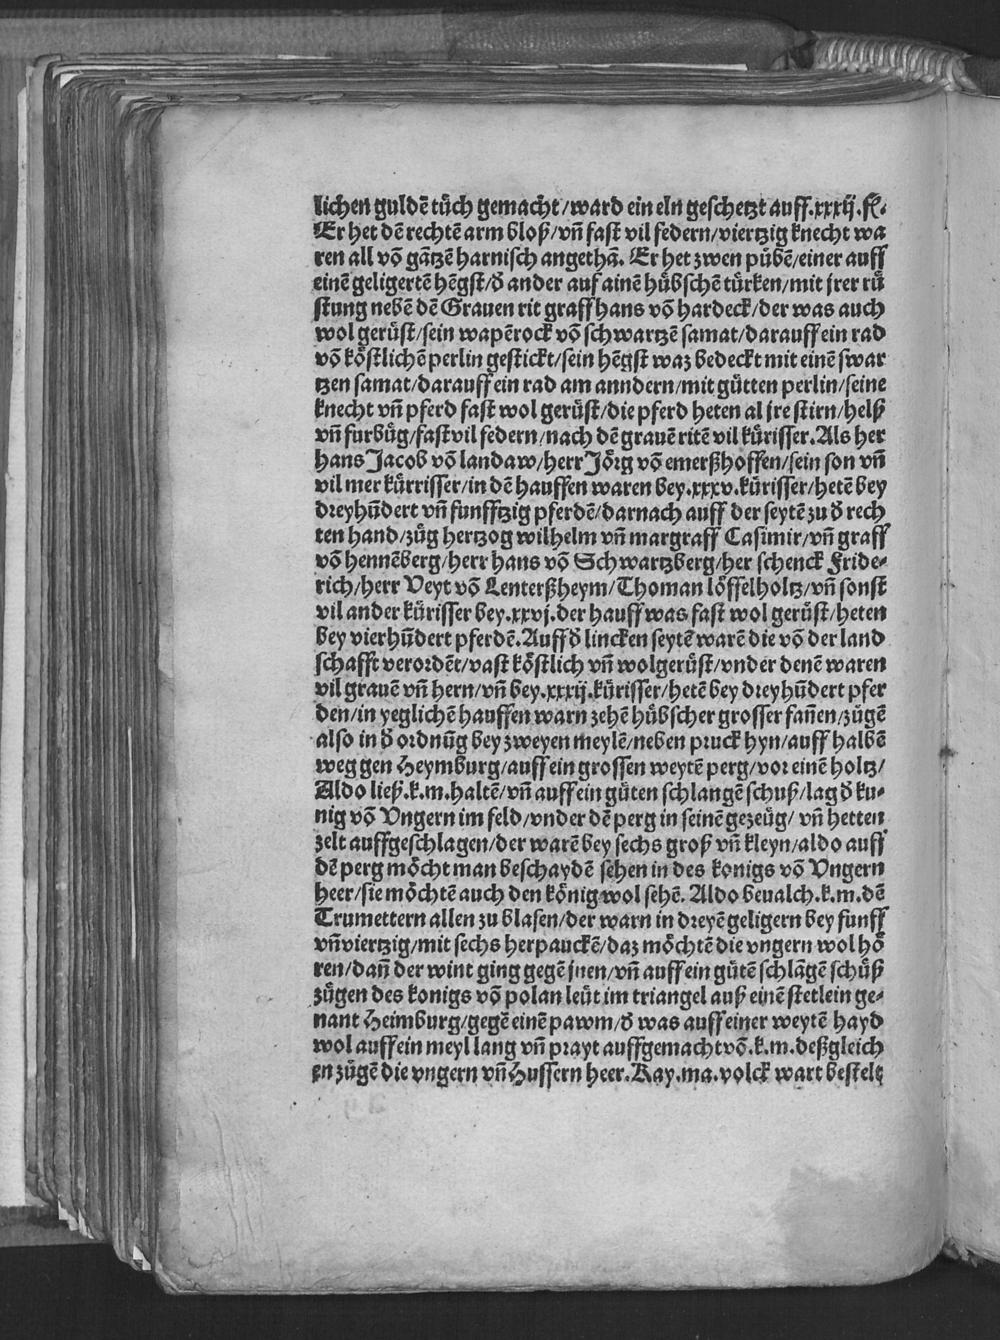 lichen guldē tůch gemacht/ward ein eln geschetzt auff.xxxij.fl.
Er het dē rechtē arm bloß/vñ fast vil federn/viertzig knecht wa
ren all vō gātzē harnisch angethā. Er het zwen půbē/einer auff
einē geligertē hēgst/d̄ ander auf ainē hübschē türken/mit jrer rü
stung nebē dē Grauen rit graff hans vō hardeck/der was auch
wol gerüst/sein wapērock vō schwartzē samat/darauff ein rad
vō köstlichē perlin gestickt/sein hēgst waz bedeckt mit einē swar
tzen samat/darauff ein rad am anndern/mit gůtten perlin/seine
knecht vñ pferd fast wol gerüst/die pferd heten al jre stirn/helß
vñ furbüg/fast vil federn/nach dē grauē ritē vil kürisser.Als her
hans Jacob vō landaw/herr Jörg vō emerßhoffen/sein son vñ
vil mer kürrisser/in dē hauffen waren bey.xxxv.kürisser/hetē bey
dreyhūdert vñ funfftzig pferdē/darnach auff der seytē zu d̄ rech
ten hand/züg hertzog wilhelm vñ margraff Casimir/vñ graff
vō hennēberg/herr hans vō Schwartzberg/her schenck Fride-
rich/herr Veyt vō Lenterßheym/Thoman löffelholtz/vñ sonst
vil ander kürisser bey.xxvj.der hauff was fast wol gerüst/heten
bey vierhūdert pferdē.Auff d̄ lincken seytē warē die vō der land
schafft verordēt/vast köstlich vñ wolgerüst/vnder denē waren
vil grauē vñ hern/vñ bey.xxxij.kürisser/hetē bey dreyhūdert pfer
den/in yeglichē hauffen warn zehē hübscher grosser fañen/zügē
also in d̄ ordnūg bey zweyen meylē/neben pruck hyn/auff halbē
weg gen Heymburg/auff ein grossen weytē perg/vor einē holtz/
Aldo ließ.k.m.haltē/vñ auff ein gůten schlangē schuß/lag d̄ ku-
nig vō Vngern im feld/vnder dē perg in seinē gezeüg/ vñ hetten
zelt auffgeschlagen/der warē bey sechs groß vñ kleyn/aldo auff
dē perg möcht man beschaydē sehen in des konigs vō Vngern
heer/sie möchtē auch den könig wol sehē. Aldo beualch.k.m.dē
Trumettern allen zu blasen/der warn in dreyē geligern bey funff
vñviertzig/mit sechs herpauckē/daz möchtē die vngern wol hö
ren/dañ der wint ging gegē jnen/vñ auff ein gůtē schlāgē schüß
zügen des konigs vō polan leüt im triangel auß einē stetlein ge-
nant Heimburg/gegē einē pawm/d̄ was auff einer weytē hayd
wol auff ein meyl lang vñ prayt auffgemacht vō.k.m.deßgleich
en zügē die vngern vñ Hussern heer.Kay.ma.volck wart bestelt